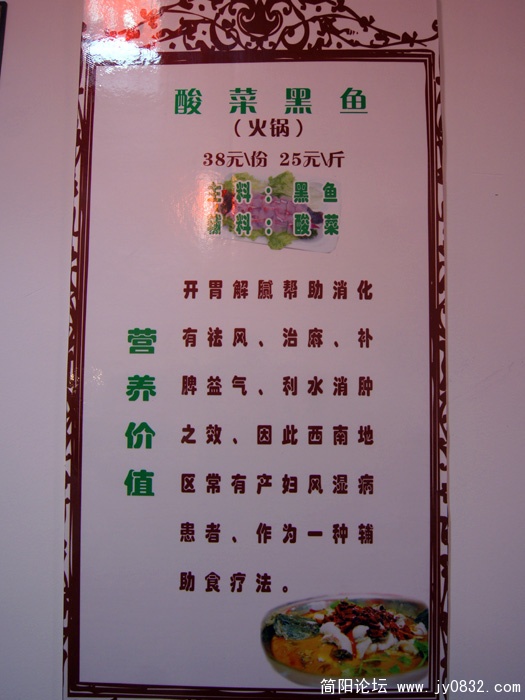 酸菜黑鱼
(火锅)
38元\份 25元\斤
主料：黑鱼
辅料：酸菜
营养价值
开胃解腻帮助消化
有祛风、治麻、补
脾益气、利水消肿
之效、因此西南地
区常有产妇风湿病
患者、作为一种辅
助食疗法。
简阳论坛 www.jy0832.com